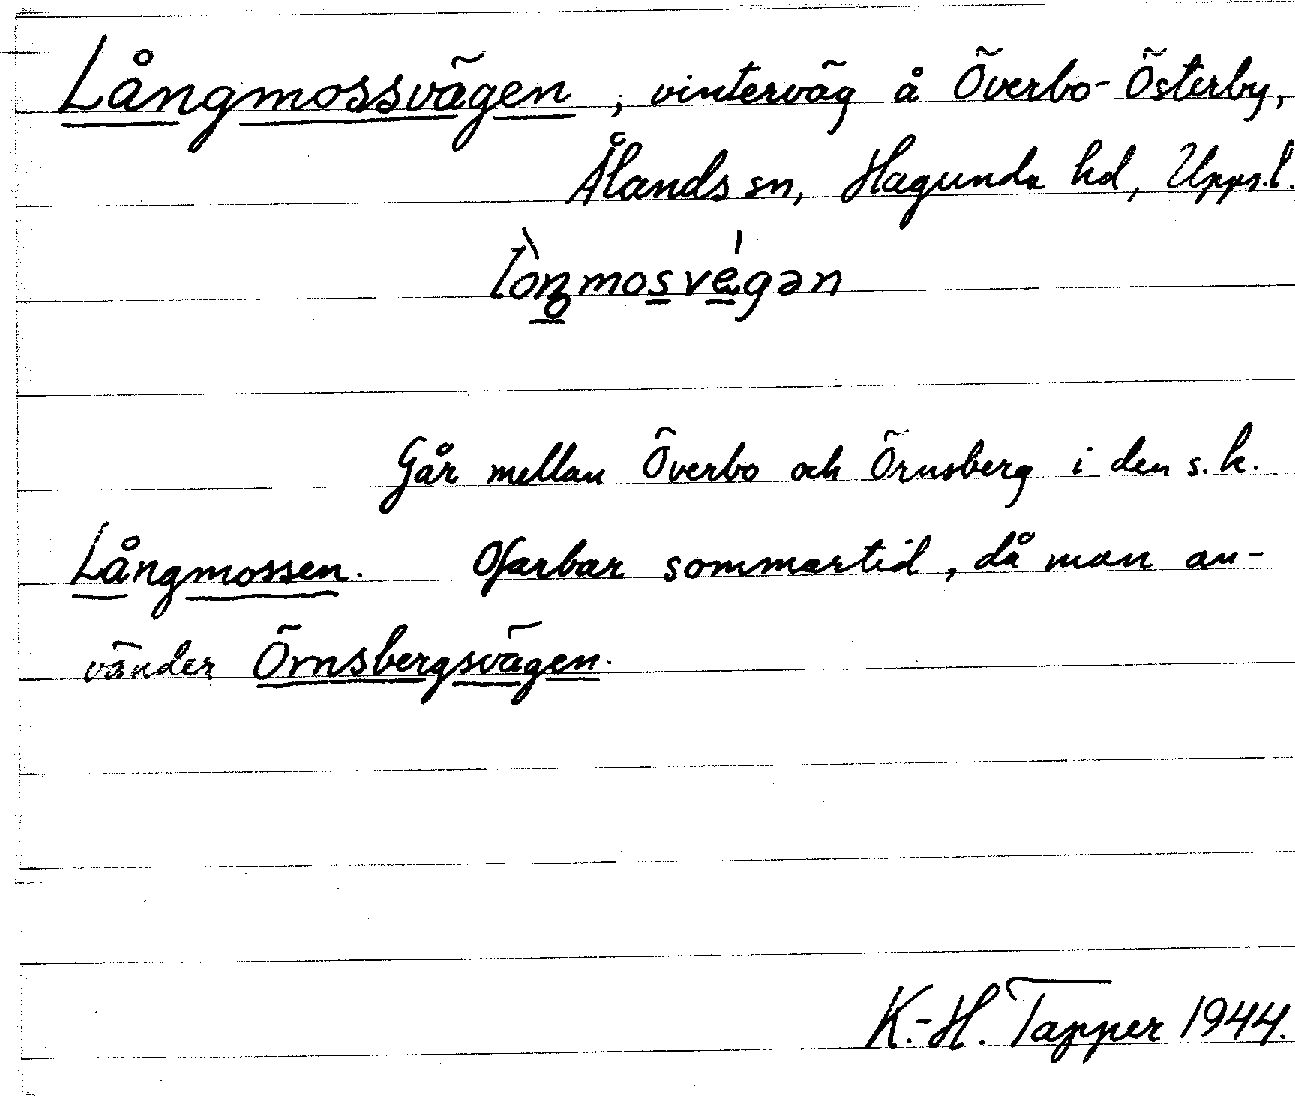 Långmossvägen, vinterväg å Överbo-Österby,
Ålands sn, Hagunda hd, Upps.l.
lòŋmosvégən
Går mellan Överbo och Örnsberg i den s.k.
Långmossen. Ofarbar sommartid, då man an-
vänder Örnsbergsvägen.
K.-H. Tapper 1944.